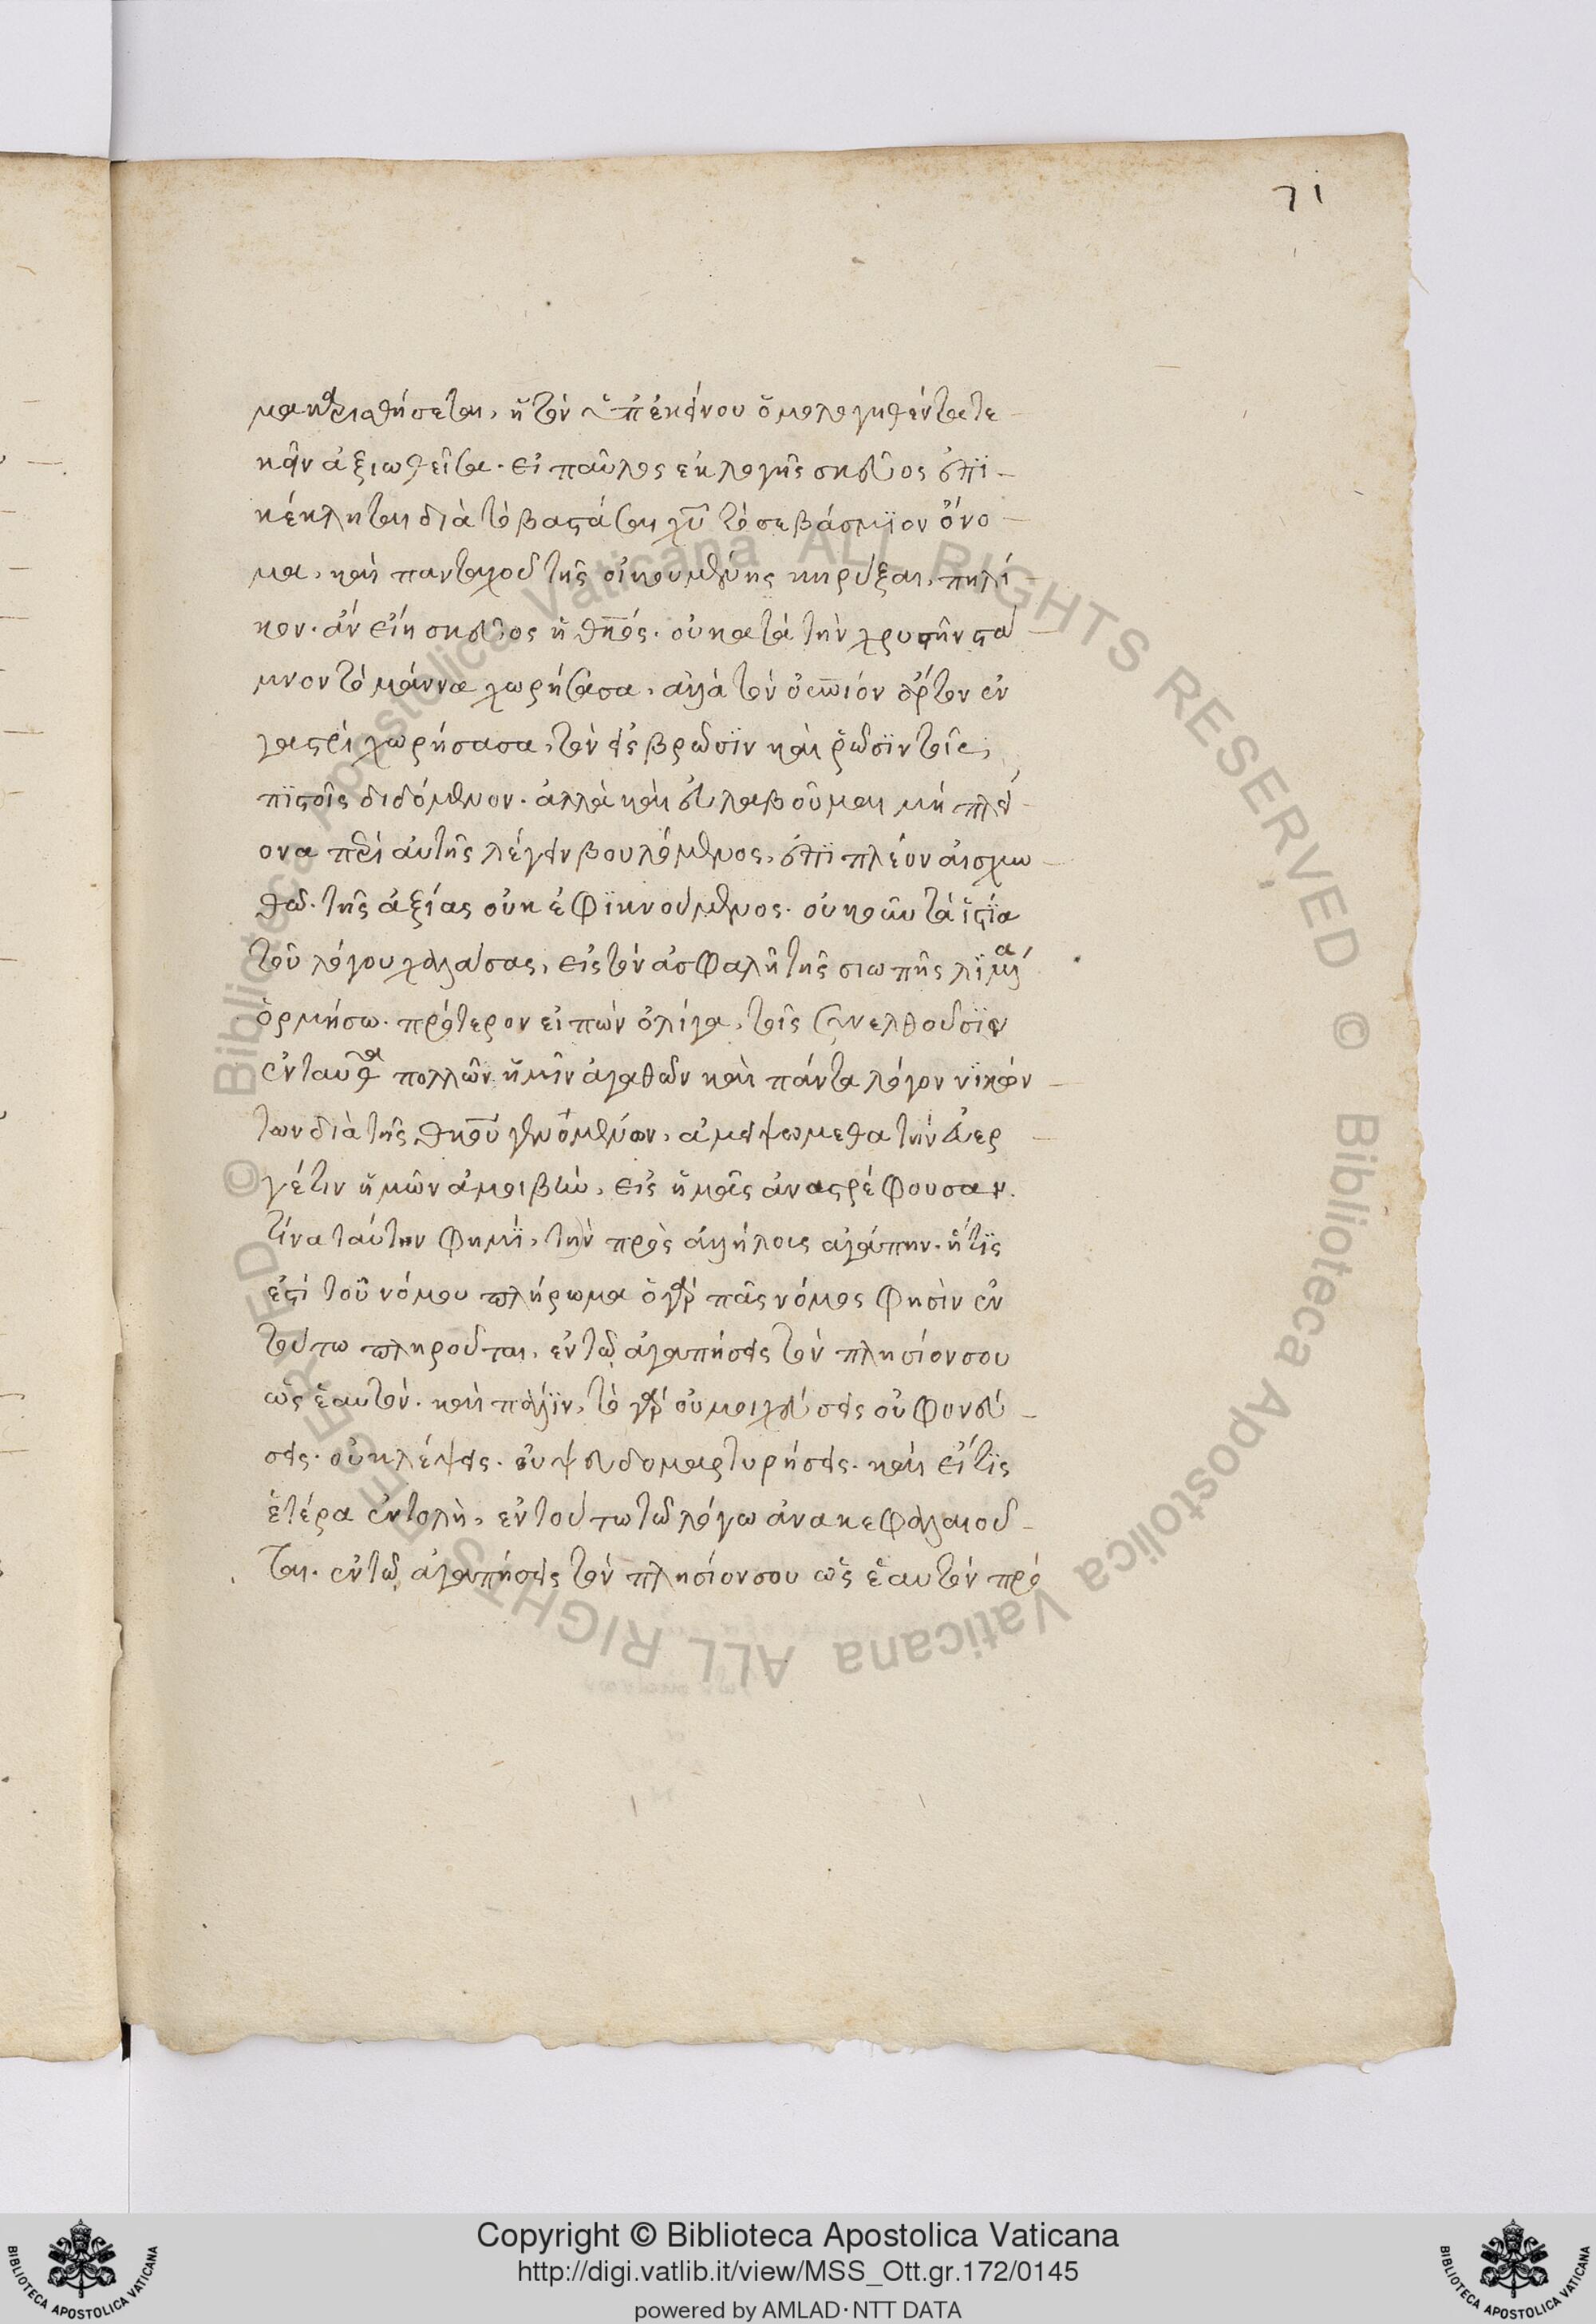 71
μακαρισθήσεται, ἢ τὸν ὑπ' ἐκείνου ὁμολογηθέντα τε
κεῖν ἀξιωθεῖσα. εἰ παῦλος ἐκλογῆς σκεῦος ἐπι
κέκληται διὰ τὸ βαστάσαι χῦ τὸ σεβάσμϊον ὄνο
μα, καὶ πανταχοῦ τῆς οἰκουμένης κηρύξαι, πηλί
κον. ἂν εἴη σκεῦος ἡ θκος. οὐ κατὰ τὴν χρυσῆν στά
μνον τὸ μάννα χωρήσασα, ἀλλὰ τὸν οὐνιόν ἄρτον ἐν
γαστρὶ χωρήσασα, τὸν εἰς βρῶσϊν καὶ ῥῶσϊν τοῖς
πϊστοῖς διδόμενον. ἀλλὰ καὶ εὐλαβοῦμαι μὴ πλεί
ονα περὶ αὐτῆς λέγειν βουλόμενος, ἐπὶ πλέον αἰσχυ
θῶ. τῆς ἀξίας οὐκ ἐφϊκνούμενος. οὐκοῦν τὰ ἱστία
τοῦ λόγου χαλάσας, εἰς τὸν ἀσφαλῆ τῆς σιωπῆς λϊμένα
ὁρμήσω. πρότερον εἰπὼν ὀλίγα, τοῖς συνελθοῦσϊν
ἐνταῦθα πολλῶν ἡμῖν ἀγαθῶν καὶ πάντα λόγον νϊκών
των διὰ τῆς θκου γενομένων, ἀμειψώμεθα τὴν εὐερ
γέτιν ἡμῶν ἀμοιβὴν, εἰς ἡμᾶς ἀναστρέφουσαν.
τίνα ταύτην φημϊ, τὴν πρὸς ἀλλήλους ἀγάπην. ἥτϊς
ἐστὶ τοῦ νόμου πλήρωμα ὁ γὰρ πᾶς νόμος φησὶν ἐν
τούτω πληροῦται, ἐν τῶ ἀγαπήσεις τὸν πλησίον σου
ὡς ἑαυτόν. καὶ πάλϊν, τὸ γὰρ οὐ μοιχεύσεις οὐ φονεύ
σεις. οὐ κλέψεις. οὐ ψευδομαρτυρήσεις. καὶ εἴ τϊς
ἑτέρα ἐντολὴ, ἐν τούτω τῶ λόγω ἀνακεφαλαιοῦ
ται. ἐν τῶ ἀγαπήσεις τὸν πλησίον σου ὡς ἑαυτόν πρό
Copyright © Biblioteca Apostolica Vaticana
http://digi.vatlib.it/view/MSS_Ott.gr.172/0145
powered by AMLAD·NTT DATA